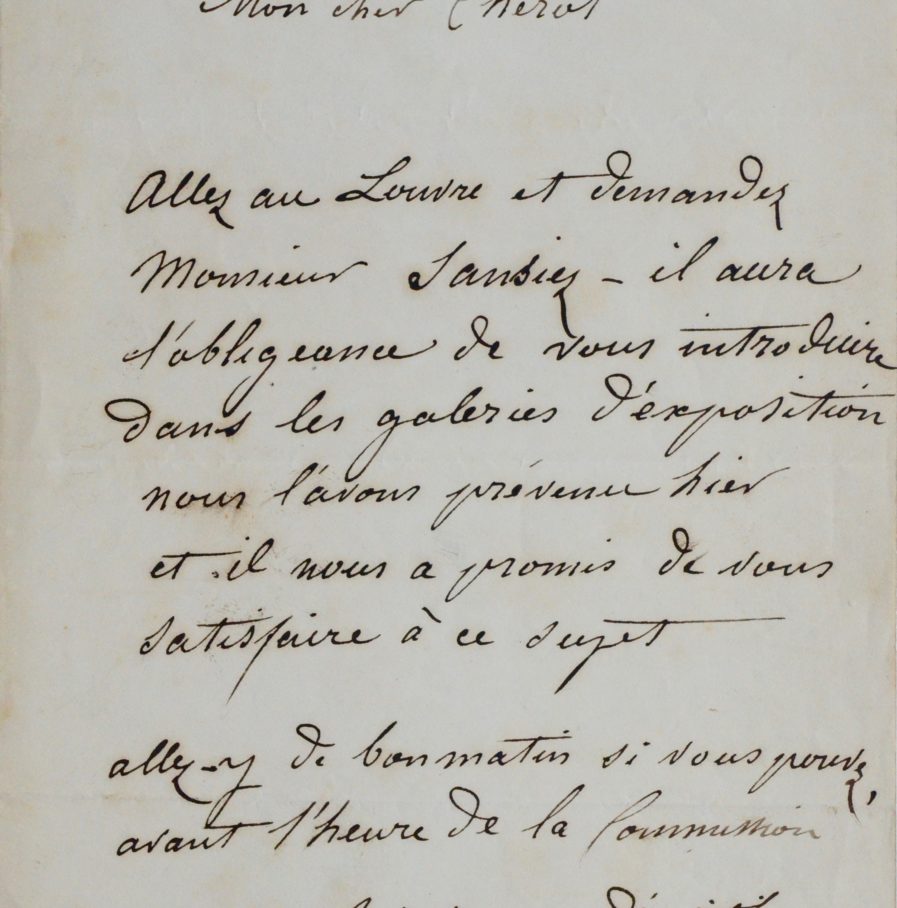 Mon cher Cherot
Allez au Louvre et demandez
Monsieur Sansiez – il aura
l'obligeance de vous introduire
dans les galeries d'exposition
nous l'avons prévenu hier
et il nous a promis de vous
satisfaire à ce sujet
allez-y de bon matin si vous pouvez,
avant l'heure de la Commission